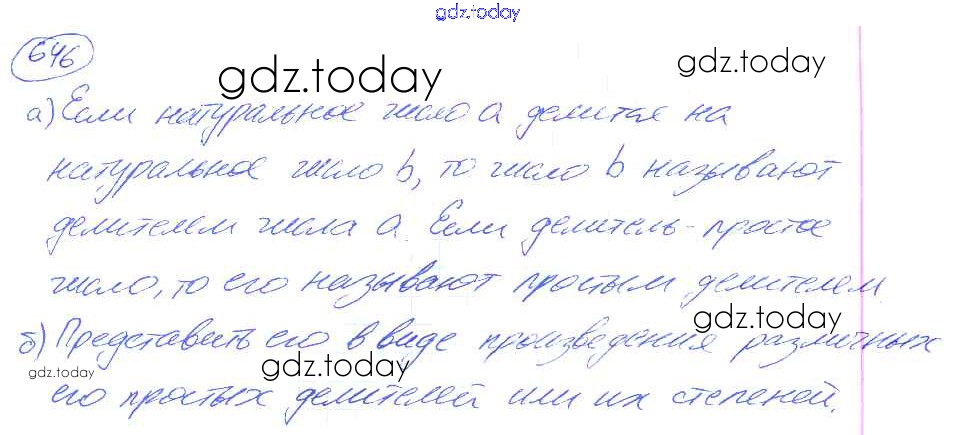 gdz.today
646
gdz.today
gdz.today
а) Если натуральное число a делится на
натуральное число b, то число b называют
делителем числа a. Если делитель - простое
число, то его называют простым делителем
gdz.today
б) Представить его в виде произведения различных
gdz.today
gdz.today
его простых делителей или их степеней.